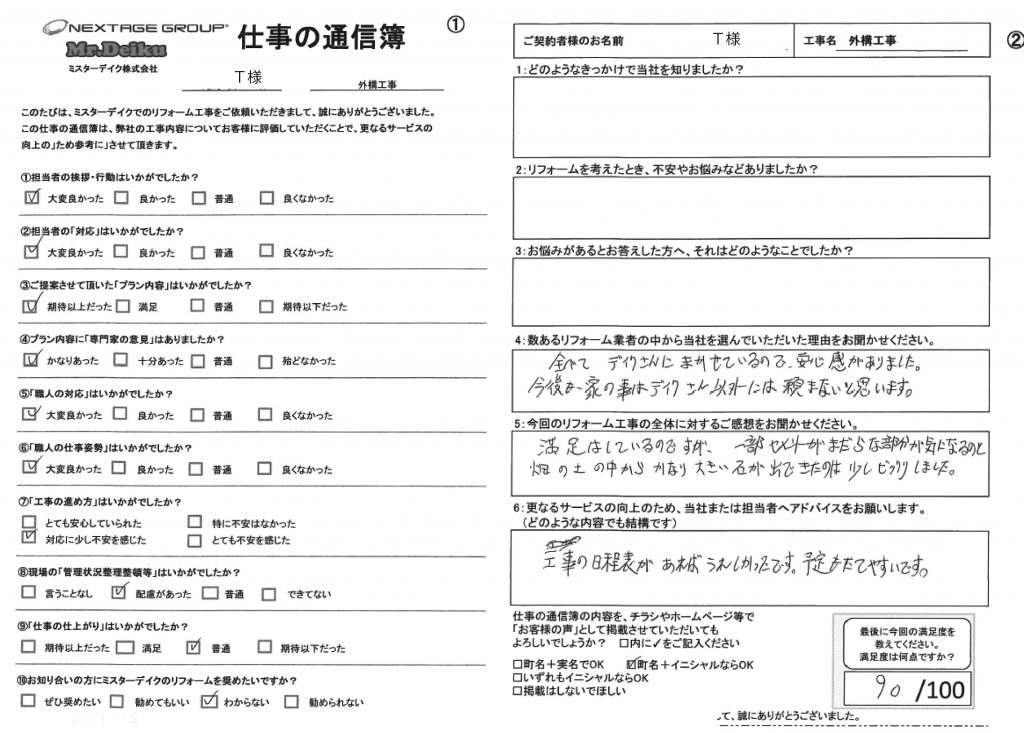 NEXTAGE GROUP
Mr.Deiku
ミスターデイク株式会社
仕事の通信簿
①
T様
外構工事
このたびは、ミスターデイクでのリフォーム工事をご依頼いただきまして、誠にありがとうございました。
この仕事の通信簿は、弊社の工事内容についてお客様に評価していただくことで、更なるサービスの
向上の」ため参考に」させて頂きます。
①担当者の挨拶・行動はいかがでしたか？
☑ 大変良かった □ 良かった □ 普通 □ 良くなかった
②担当者の「対応」はいかがでしたか？
☑ 大変良かった □ 良かった □ 普通 □ 良くなかった
③ご提案させて頂いた「プラン内容」はいかがでしたか？
☑ 期待以上だった □ 満足 □ 普通 □ 期待以下だった
④プラン内容に「専門家の意見」はありましたか？
☑ かなりあった □ 十分あった □ 普通 □ 殆どなかった
⑤「職人の対応」はいかがでしたか？
☑ 大変良かった □ 良かった □ 普通 □ 良くなかった
⑥「職人の仕事姿勢」はいかがでしたか？
☑ 大変良かった □ 良かった □ 普通 □ 良くなかった
⑦「工事の進め方」はいかがでしたか？
□ とても安心していられた □ 特に不安はなかった
☑ 対応に少し不安を感じた □ とても不安を感じた
⑧現場の「管理状況整理整頓等」はいかがでしたか？
□ 言うことなし ☑ 配慮があった □ 普通 □ できてない
⑨「仕事の仕上がり」はいかがでしたか？
□ 期待以上だった □ 満足 ☑ 普通 □ 期待以下だった
⑩お知り合いの方にミスターデイクのリフォームを奨めたいですか？
□ ぜひ奨めたい □ 勧めてもいい ☑ わからない □ 勧められない
②
ご契約者様のお名前 T様 工事名 外構工事
1：どのようなきっかけで当社を知りましたか？
2：リフォームを考えたとき、不安やお悩みなどありましたか？
3：お悩みがあるとお答えした方へ、それはどのようなことでしたか？
4：数あるリフォーム業者の中から当社を選んでいただいた理由をお聞かせください。
全べて デイクさんにまかせているので、安心感がありました。
今後も家の事はデイクさん以外には頼まないと思います。
5：今回のリフォーム工事の全体に対するご感想をお聞かせください。
満足はしているのですが、一部セメントがまだらな部分が気になるのと
畑の土の中からかなり大きい石が出てきたのは少しビックリしました。
6：更なるサービスの向上のため、当社または担当者へアドバイスをお願いします。
（どのような内容でも結構です）
工事の日程表があればうれしかったです。予定もたてやすいです。
仕事の通信簿の内容を、チラシやホームページ等で
「お客様の声」として掲載させていただいても
よろしいでしょうか？ □内に✓をご記入ください
□町名＋実名でOK ☑町名＋イニシャルならOK
□いずれもイニシャルならOK
□掲載はしないでほしい
最後に今回の満足度を
教えてください。
満足度は何点ですか？
90 /100
て、誠にありがとうございました。